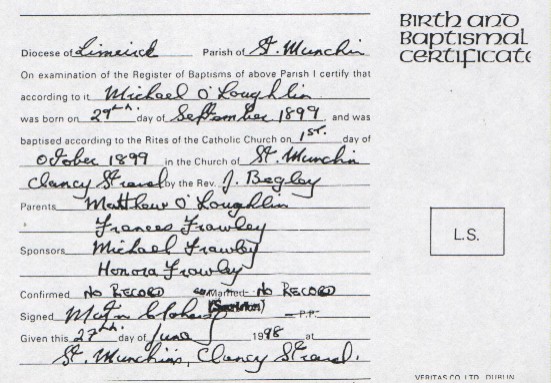 Birth and
Baptismal
Certificate
Diocese of Limerick Parish of St. Munchin
On examination of the Register of Baptisms of above Parish I certify that
according to it Michael O'Loughlin
was born on 29th. day of September 1899 and was
baptised according to the Rites of the Catholic Church on 1st. day of
October 1899 in the Church of St. Munchin
Clancy Strand by the Rev. J. Begley
Parents Matthew O'Loughlin
Frances Frawley
Sponsors Michael Frawley
Honora Frawley
L.S.
Confirmed NO RECORD Married NO RECORD
Signed P.P.
Given this 27th. day of June 1998 at
St. Munchins, Clancy Strand.
VERITAS CO. LTD. DUBLIN